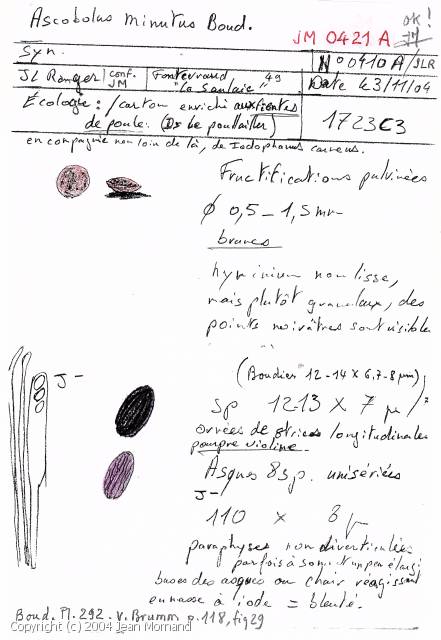 Ascobolus minutus Boud.
ok!
JM 0421 A
Syn.
N° 0410 A/JLR
JL Ranger
conf. JM
Fontevraud 49
"La Sanlaie"
Date 13/11/04
Écologie: /carton enrichi aux fientes
de poule. (Ds le poullailler)
1723C3
en compagnie non loin de là, de Iodophanus carneus.
Fructifications pulvinées
ø 0,5 - 1,5 mm
brunes
hyménium non lisse,
mais plutôt granuleux, des
points noirâtres sont visibles
(Boudier 12-14 X 6,7-8 µm)
J-
sp 1213 X 7 µ
ornées de stries longitudinales
pourpre violine.
Asques 8 sp. unisériées
J-
110 x 8 µ
paraphyses non diverticulées
parfois à sommet un peu élargi
bases des asques ou chair réagissant
en masse à iode = bleuté.
Boud. Pl. 292. V. Brumm p. 118, fig 29
Copyright (c) 2004 Jean Mornand